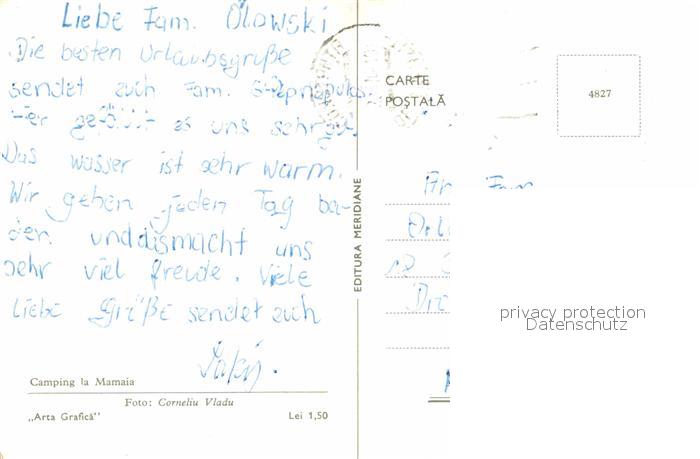 Liebe Fam. Olowski
Die besten Urlaubsgruße
sendet euch Fam.
Hier gefällt es uns sehr gut.
Das wasser ist sehr warm.
Wir gehen jeden Tag ba-
den unddasmacht uns
sehr viel freude. Viele
Liebe Grüße sendet euch
Camping la Mamaia
Foto: Corneliu Vladu
„Arta Grafică" Lei 1,50
EDITURA MERIDIANE
CARTE
POȘTALĂ
4827
privacy protection
Datenschutz